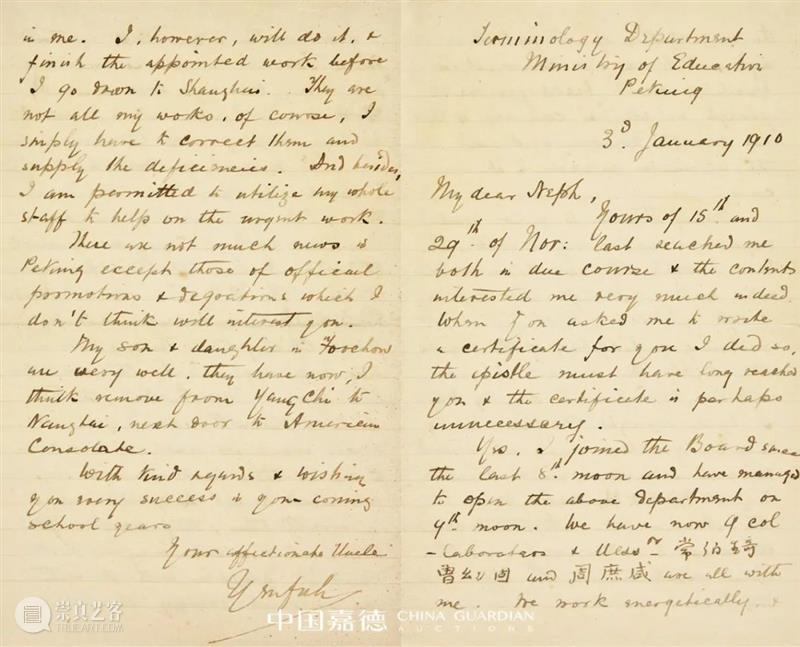 Terminology Department
Ministry of Education
Peking
3d. January 1910
My dear Neph,
Yours of 15th. and
29th. of Nov: last reached me
both in due course & the contents
interested me very much indeed.
When you asked me to write
a certificate for you I did so,
the epistle must have long reached
you & the certificate is perhaps
unnecessary.
Yes. I joined the Board since
the last 8th. moon and have managed
to open the above department on
9th. moon. We have now 9 col
-laborators &
and are all with
me. We work energetically. &
in me. I, however, will do it, &
finish the appointed work before
I go down to Shanghai. They are
not all my works, of course, I
simply have to correct them and
supply the deficiencies. And besides,
I am permitted to utilize my whole
staff to help on the urgent work.
There are not much news in
Peking except those of official
promotions & degrations which I
don't think will interest you.
My son & daughter in Foochow
are very well. they have now, I
think remove from Yangchi to
Nanghai, next door to American
Consolate.
With kind regards & wishing
you every success in your coming
school years
Your affectionate Uncle
Yenfuh.
中国嘉德 CHINA GUARDIAN
AUCTIONS
崇真艺客